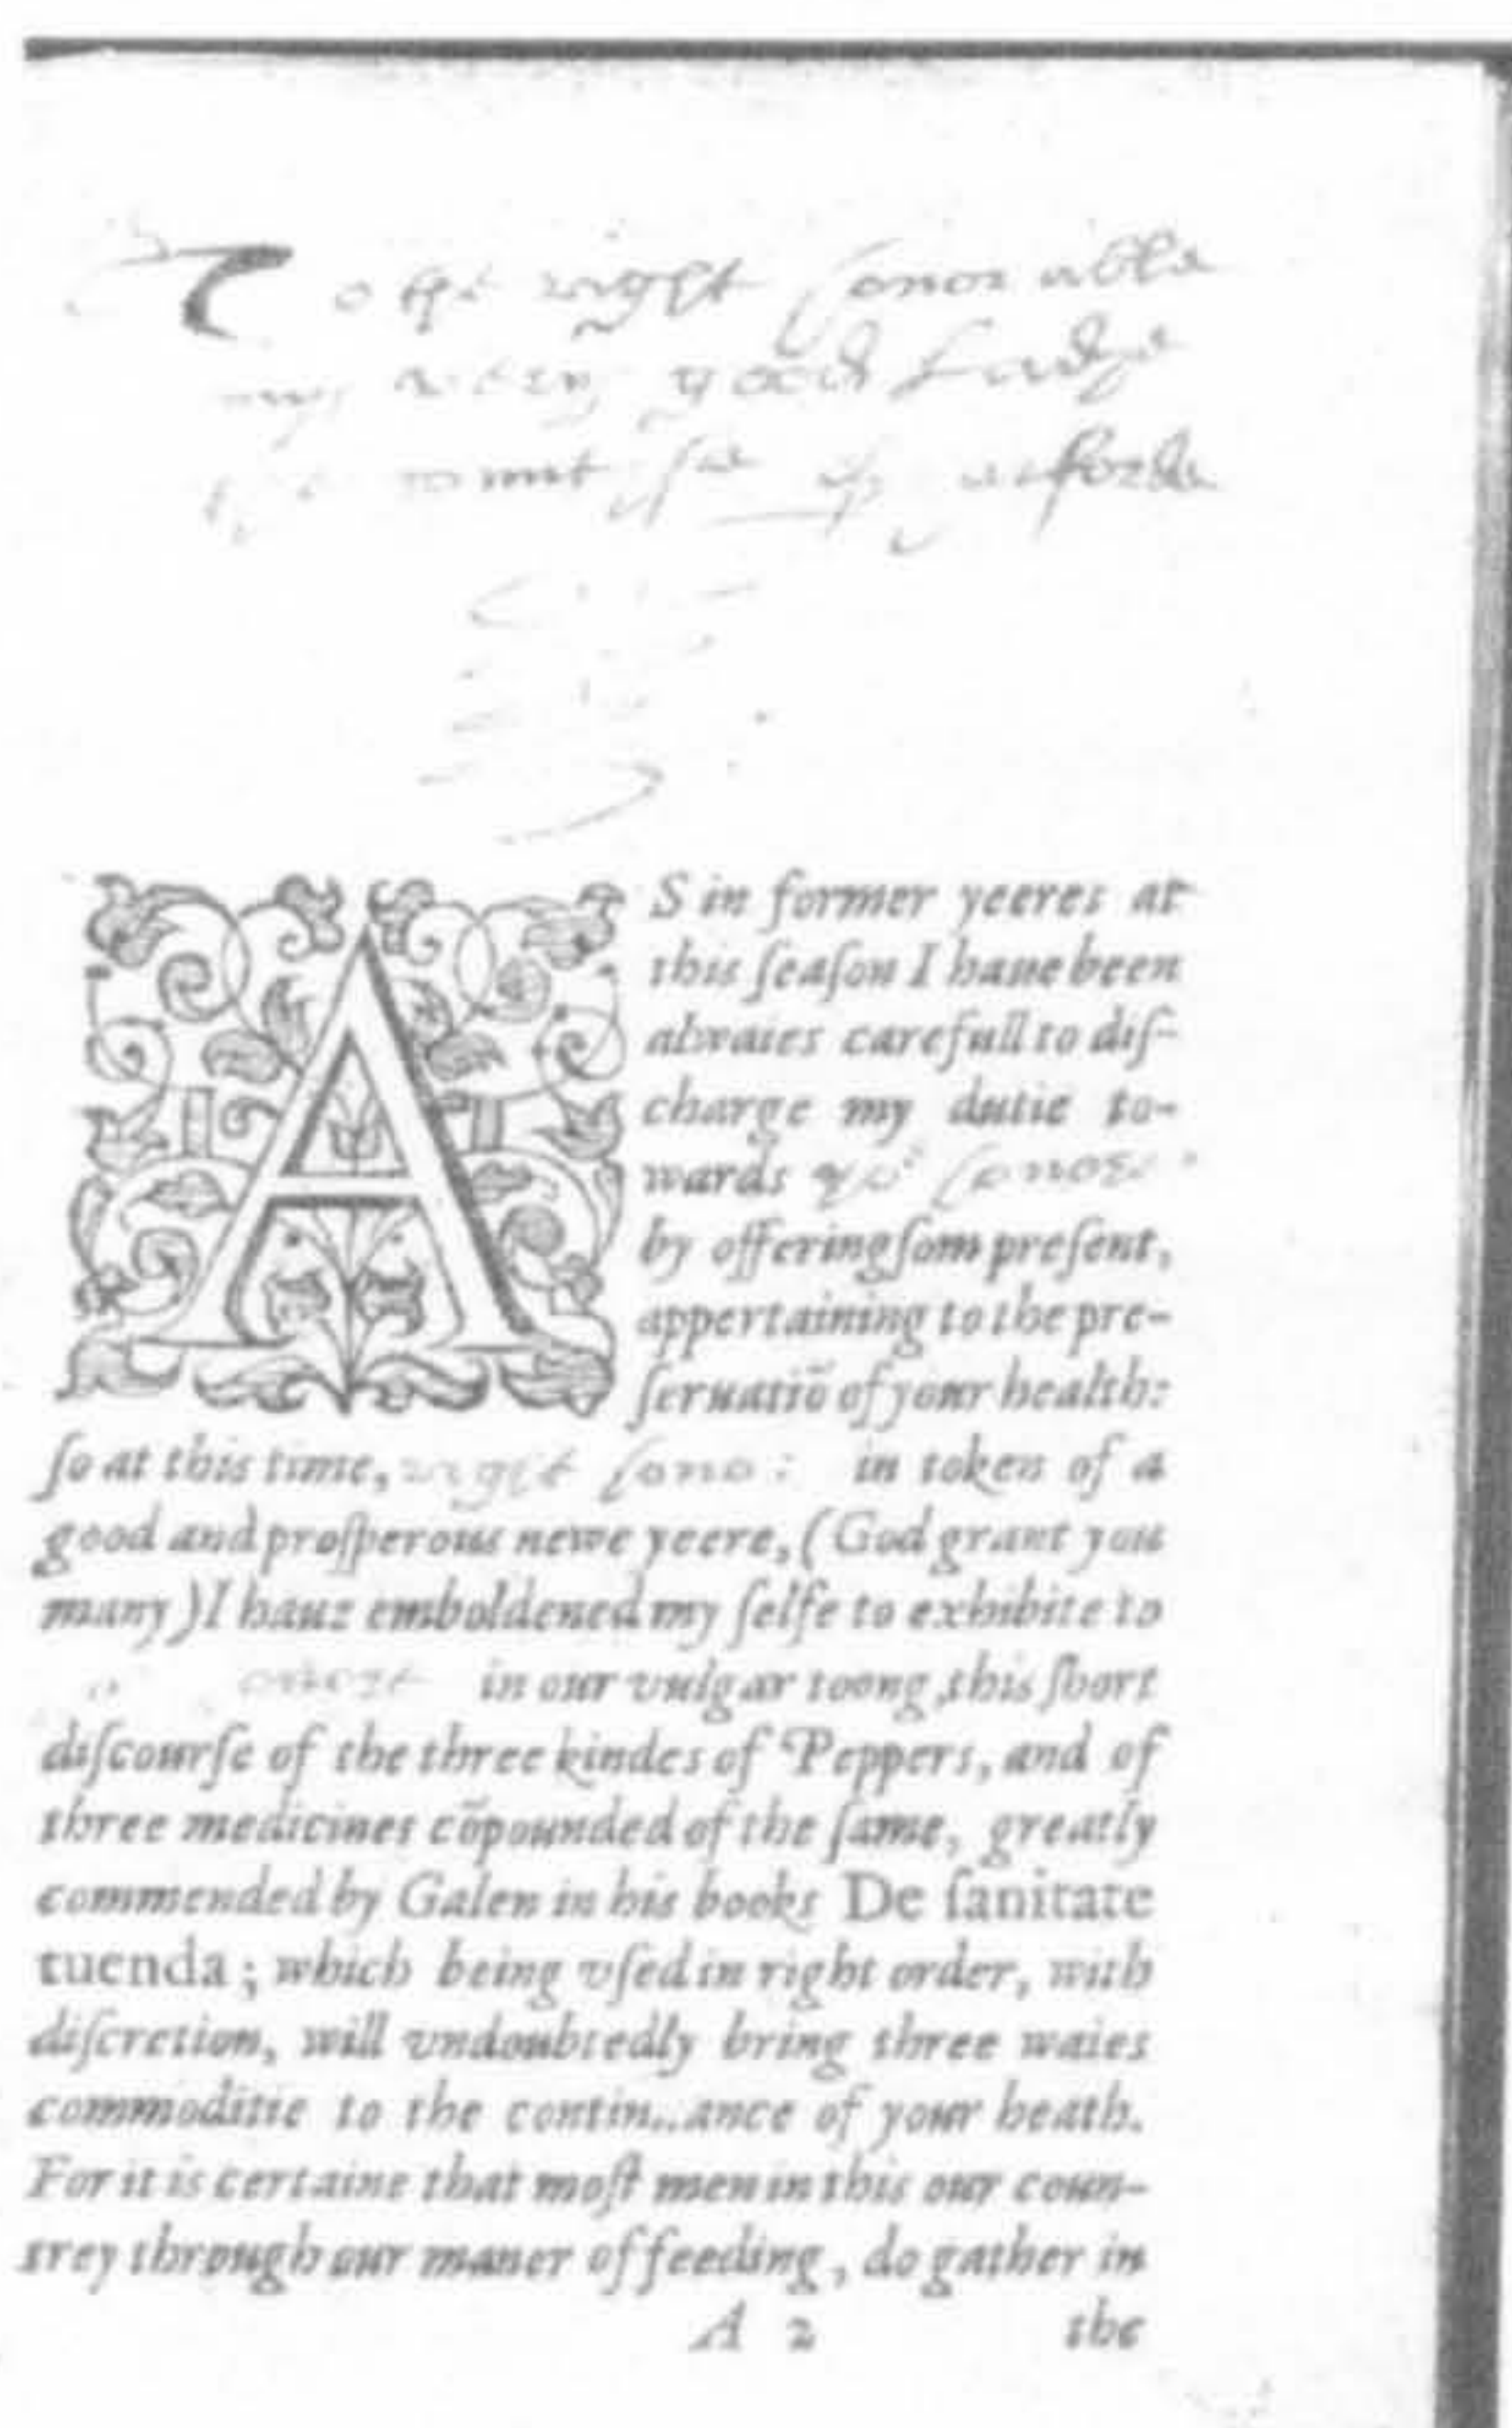 To the right honorable
my very good Ladye
AS in former yeeres at
this ſeaſon I haue been
alwaies carefull to diſ-
charge my dutie to-
wards yor honor
by offering ſom preſent,
appertaining to the pre-
ſeruatiō of your health:
ſo at this time, right hono: in token of a
good and proſperous newe yeere, (God grant you
many) I haue emboldened my ſelfe to exhibite to
in our vulgar toong, this ſhort
diſcourſe of the three kindes of Peppers, and of
three medicines cōpounded of the ſame, greatly
commended by Galen in his books De ſanitate
tuenda; which being vſed in right order, with
diſcretion, will vndoubtedly bring three waies
commoditie to the contin..ance of your heath.
For it is certaine that moſt men in this our coun-
trey through our maner of feeding, do gather in
A 2 the